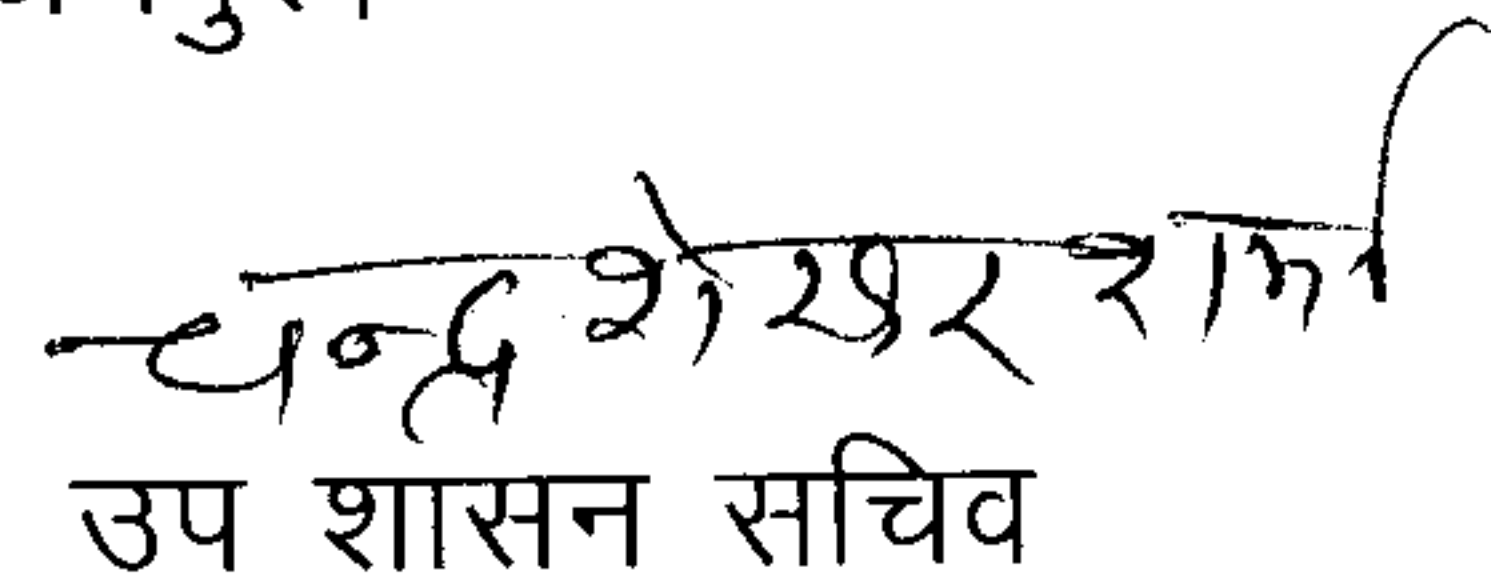 चन्द्र शेखर शर्मा
उप शासन सचिव